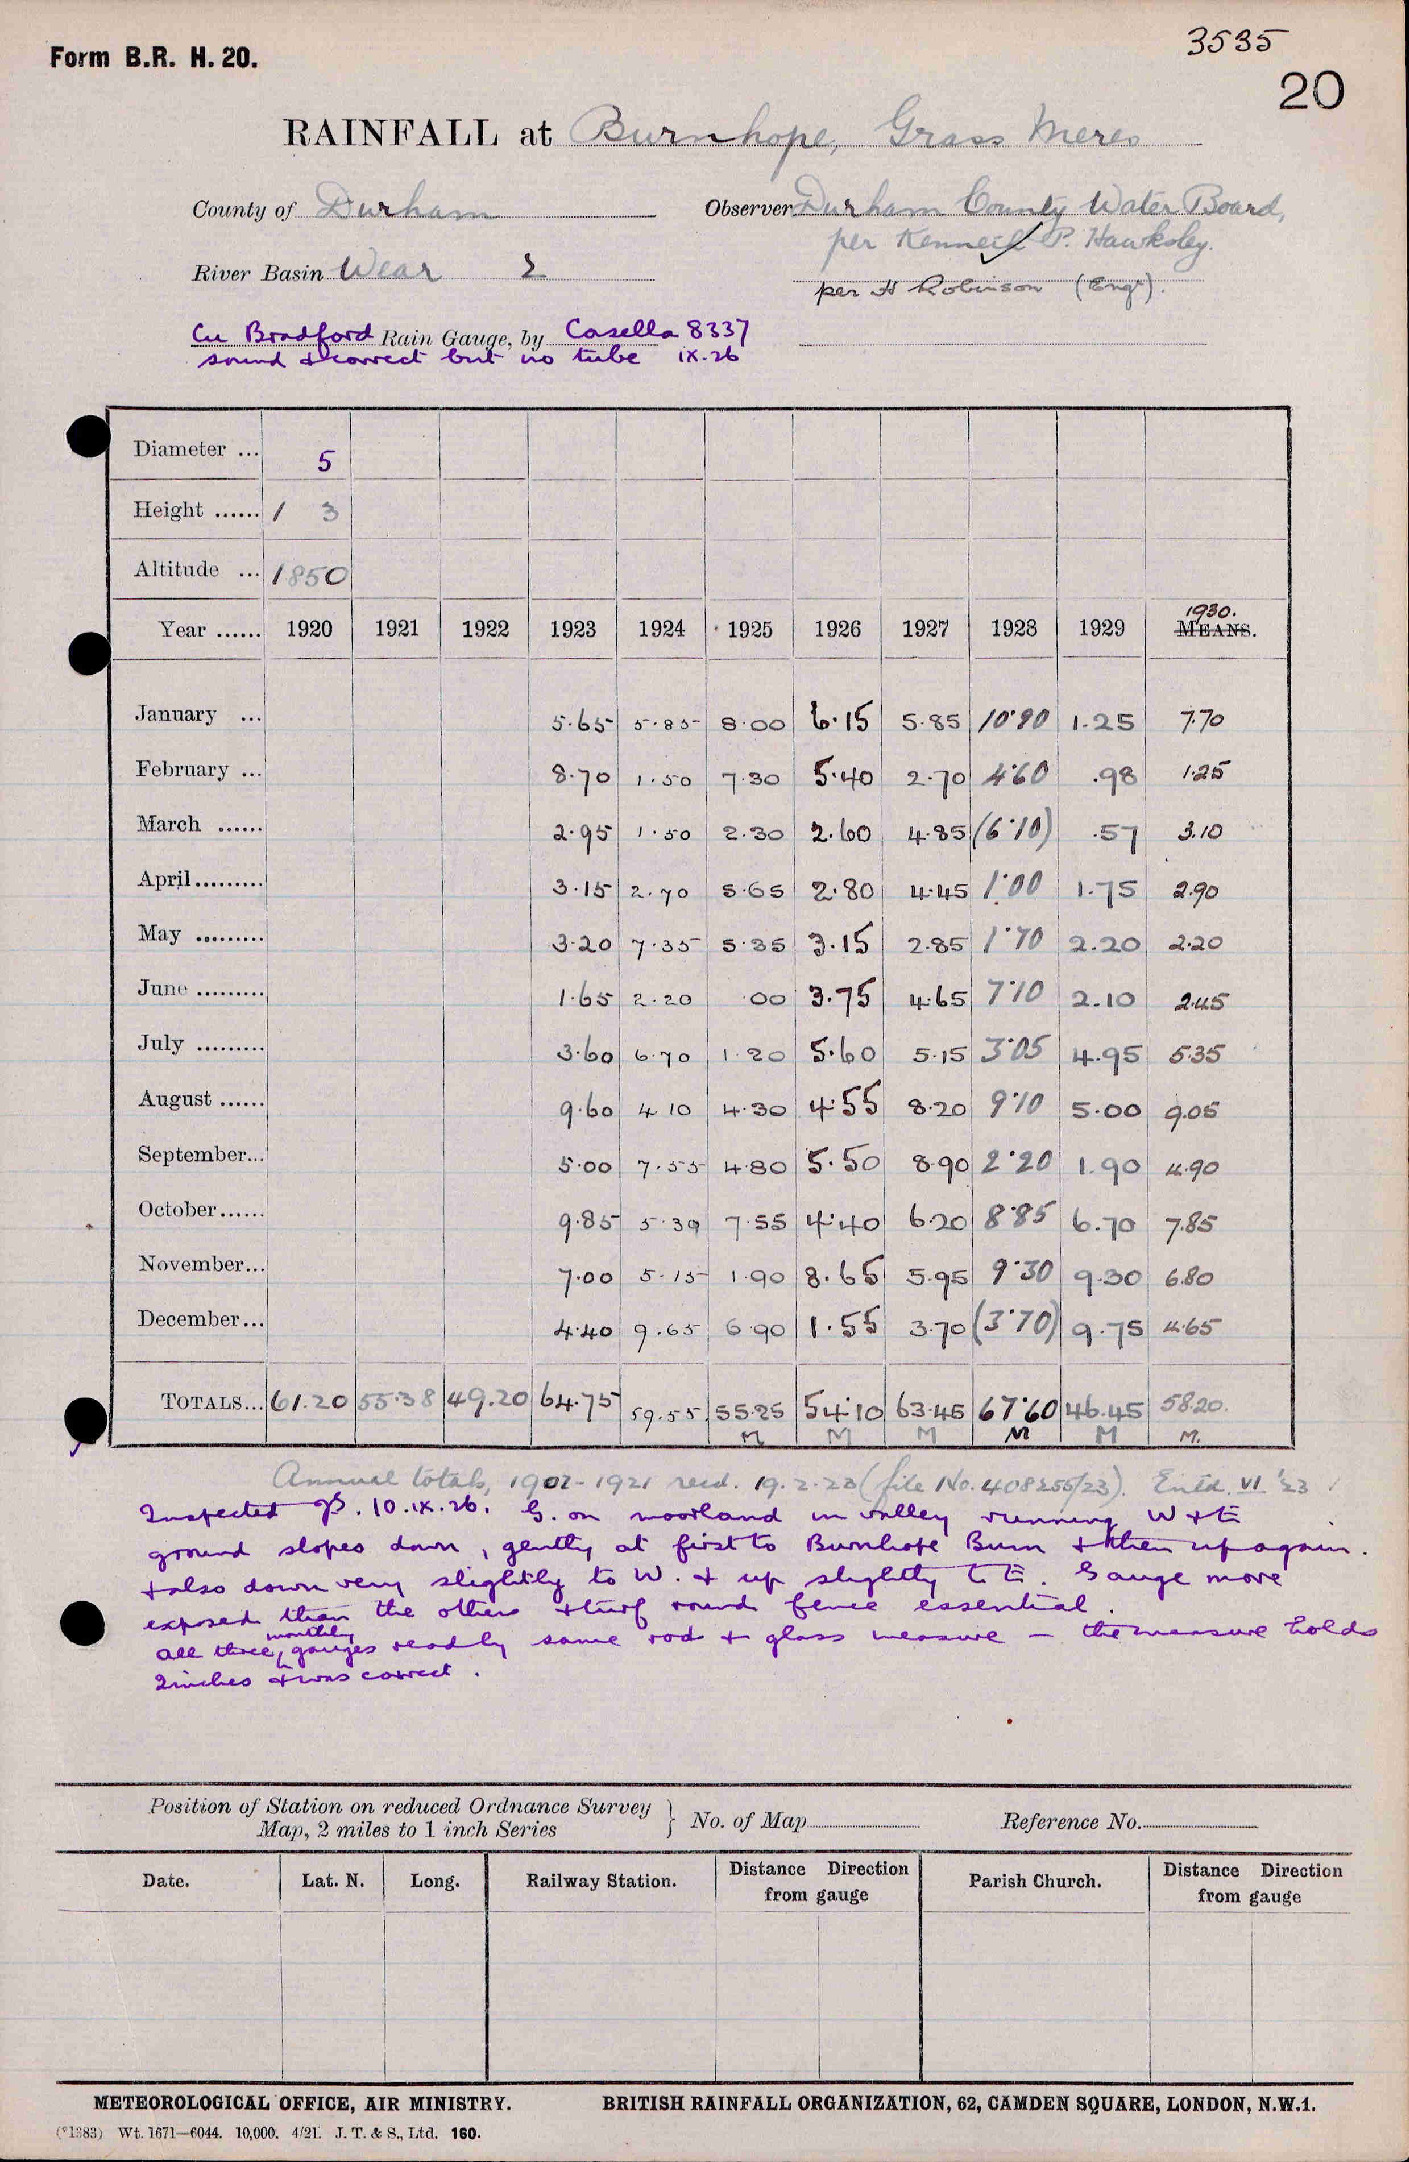 3535
Form B.R. H. 20.
20
RAINFALL at Burnhope, Grass Meres
County of Durham Observer Durham County Water Board,
per Kenneth P. Hawksley.
River Basin Wear 2
per H Robinson (Engr).
Cu Bradford Rain Gauge, by Casella 8337
sound & correct but no tube ix.26
Diameter ... 5
Height ...... 1 3
Altitude ... 1850
1930.
Year ...... 1920 1921 1922 1923 1924 1925 1926 1927 1928 1929 MEANS.
January ... 5.65 5.85 8.00 6.15 5.85 10.90 1.25 7.70
February ... 8.70 1.50 7.30 5.40 2.70 4.60 .98 1.25
March ...... 2.95 1.50 2.30 2.60 4.85 (6.10) .57 3.10
April......... 3.15 2.70 5.65 2.80 4.45 1.00 1.75 2.90
May ......... 3.20 7.35 5.35 3.15 2.85 1.70 2.20 2.20
June ......... 1.65 2.20 .00 3.75 4.65 7.10 2.10 2.45
July ......... 3.60 6.70 1.20 5.60 5.15 3.05 4.95 5.35
August ...... 9.60 4.10 4.30 4.55 8.20 9.10 5.00 9.05
September... 5.00 7.55 4.80 5.50 8.90 2.20 1.90 4.90
October...... 9.85 5.30 7.55 4.40 6.20 8.85 6.70 7.85
November... 7.00 5.15 1.90 8.65 5.95 9.30 9.30 6.80
December... 4.40 9.65 6.90 1.55 3.70 (3.70) 9.75 4.65
TOTALS... 61.20 55.38 49.20 64.75 59.55 55.25 54.10 63.45 67.60 46.45 58.20.
M M M M M M.
Annual totals, 1902-1921 recd. 19.2.23 (file No. 408255/23). Entd. VI '23
Inspected . 10.ix.26. G. on moorland in valley running W & E
ground slopes down, gently at first to Burnhope Burn & then up again.
& also down very slightly to W. & up slightly to E. Gauge more
exposed than the others & turf round fence essential.
monthly
all three gauges read by same rod & glass measure – the measure holds
2 inches & was correct.
Position of Station on reduced Ordnance Survey
Map, 2 miles to 1 inch Series } No. of Map Reference No.
Date. Lat. N. Long. Railway Station. Distance Direction from gauge Parish Church. Distance Direction from gauge
METEOROLOGICAL OFFICE, AIR MINISTRY. BRITISH RAINFALL ORGANIZATION, 62, CAMDEN SQUARE, LONDON, N.W.1.
(*1383) Wt. 1671—6044. 10,000. 4/21. J. T. & S., Ltd. 160.